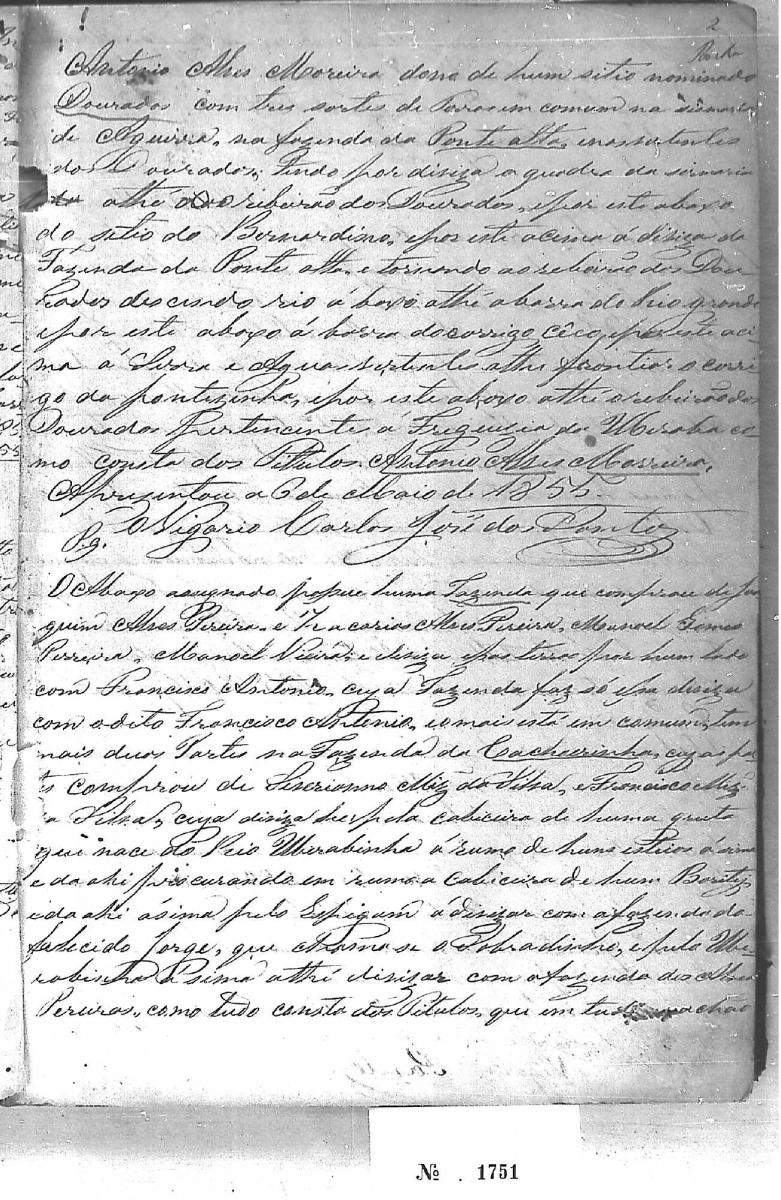 2
Antonio Alves Moreira dono de hum sitio nominado
Dourados com tres sortes de Terras em comum na sismaria
de Aguirra, na fazenda da Ponte alta, e nas vertentes
dos Dourados, Tendo por diviza a quadra da sismaria
athé o ribeirão dos Dourados, e por este abaxo
do sitio do Bernardino, e por este acima á diviza da
Fazenda da Ponte alta, e tornando ao ribeirão dos Dou-
rados descendo rio á baxo, athé a barra do Rio grande
e por este abaxo á barra do corrigo Cêco, e por este aci-
ma á Serra e Aguas vertentes athe frontiar o corri-
go da pontezinha, e por este abaxo athé o ribeirão dos
Dourados Pertencente a Freguizia da Uberaba co-
mo consta dos Titulos. Antonio Alves Morreira.
Apresentou a 6 de Maio de 1855.
Pg. O Vigario Carlos José dos Santos
O Abaxo assignado possue huma Fazenda que comprou de Joa-
quim Alves Pereira, e Zacarias Alves Pereira, Manoel Gomes
Perreira, Manoel Vieira, e diviza epas terras por hum lado
com Francisco Antonio, cuja Fazenda faz só essa diviza
com o dito Francisco Antonio, e o mais está em comum, tem
mais duas Partes na Fazenda da Cachoeirinha, cujas par-
tes comprou de Severianno Miz da Silva, e Francisco Miz
a Silva, cuja diviza he pela cabiceira de huma gruta
que nace do Rio Uberabinha á rumo de huns esteios á sima
e da ahi procurando em rumo a cabiceira de hum Boritiz
e da ahi ásima pelo Espigam á divizar com a fazenda do
falecido Jorge, que chama se o Sobradinho, e pelo Ube-
rabinha a sima athé divizar com a fazenda dos Alves
Pereiras, como tudo consta dos Titulos, que em tudo
Nº . 1751